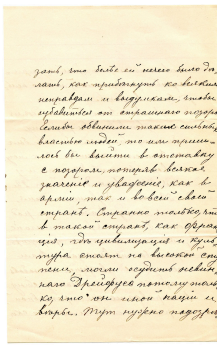 зать, что болѣе ей нечего было дѣ-
лать, как прибѣгнуть ко всяким
неправдам и выдумкам, чтобы
избавиться от страшного позора.
Еслибы обвинили таких сильных
властью людей, то им пришлось
бы выйти в отставку
с позором, потеряв всякое
значение и уважение, как в
арміи, так и во всей своей
странѣ. Странно только, что
в такой странѣ, как Фран-
ция, гдѣ цивилизация и куль-
тура стоят на высокой сте-
пени, могли осудить невин-
наго Дрейфуса потому толь-
ко, что он иной нации и
вѣры. Тут нужно подозрѣ-